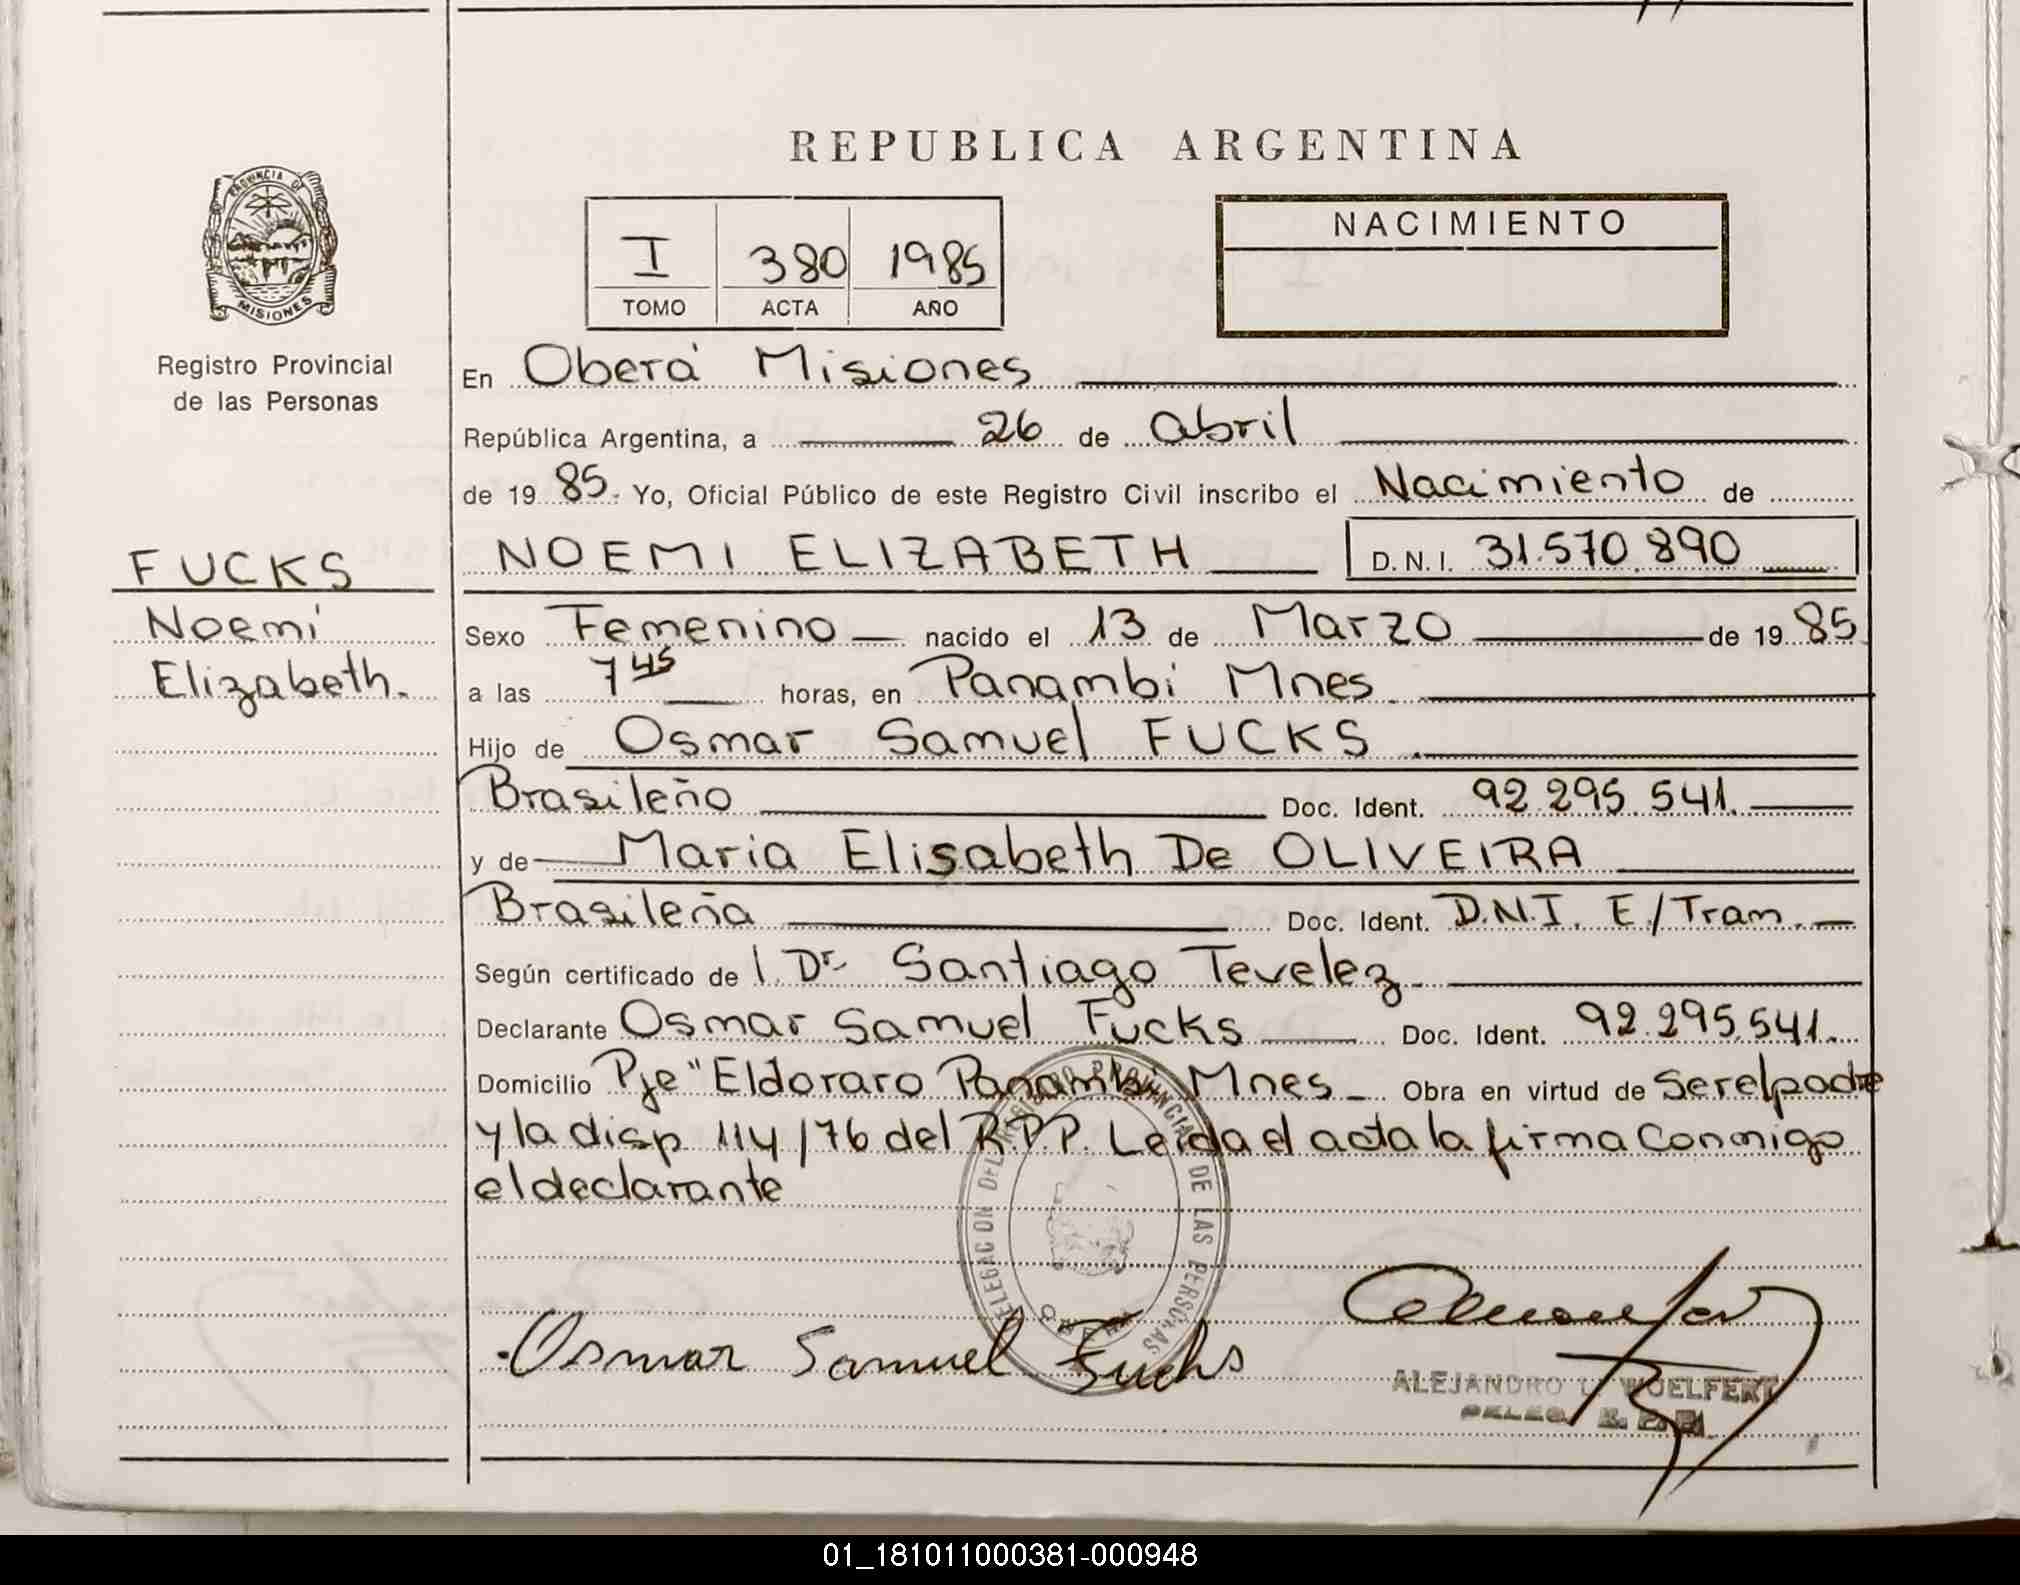 REPUBLICA ARGENTINA
PROVINCIA DE
MISIONES
Registro Provincial
de las Personas
I 380 1985
TOMO ACTA AÑO
NACIMIENTO
En Oberá Misiones
República Argentina, a 26 de abril
de 19 85. Yo, Oficial Público de este Registro Civil inscribo el Nacimiento de
FUCKS
Noemí
Elizabeth.
NOEMI ELIZABETH D.N.I. 31.570.890
Sexo Femenino nacido el 13 de Marzo de 19 85
a las 7 45 horas, en Panambi Mnes
Hijo de Osmar Samuel FUCKS
Brasileño Doc. Ident. 92.295.541.
y de Maria Elisabeth De OLIVEIRA
Brasileña Doc. Ident. D.N.I. E/Tram.
Según certificado de l Dr. Santiago Tevelez
Declarante Osmar Samuel Fucks Doc. Ident. 92.295.541.
Domicilio Pje "Eldoraro Panambi Mnes Obra en virtud de Ser el padre
y la disp 114/76 del R.P.P. Leida el acta la firma Conmigo
el declarante
DELEGACION DEL REGISTRO PROVINCIAL DE LAS PERSONAS
OBERA
Osmar Samuel Fuchs
ALEJANDRO WOELFERT
DELEG. R. P. P.
01_181011000381-000948